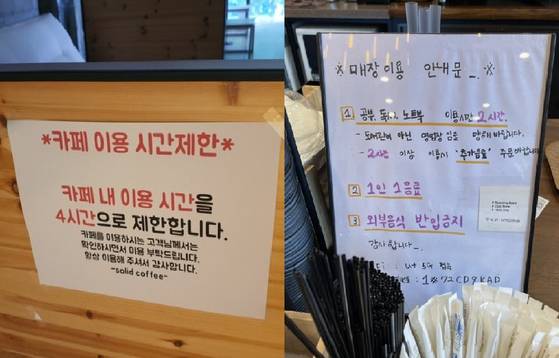 *카페 이용 시간제한*
카페 내 이용 시간을
4시간으로 제한합니다.
카페를 이용하시는 고객님께서는
확인하시면서 이용 부탁드립니다.
항상 이용해 주셔서 감사합니다.
~solid coffee~
※ 매장이용 안내문 ※
1 공부, 노트북 이용시간 2시간.
- 도서관이 아닌 영업장 임을 바랍니다.
- 2시간 이상 이용시 "추가음료" 주문
2 1인 1음료
3 외부음식 반입금지
감사합니다